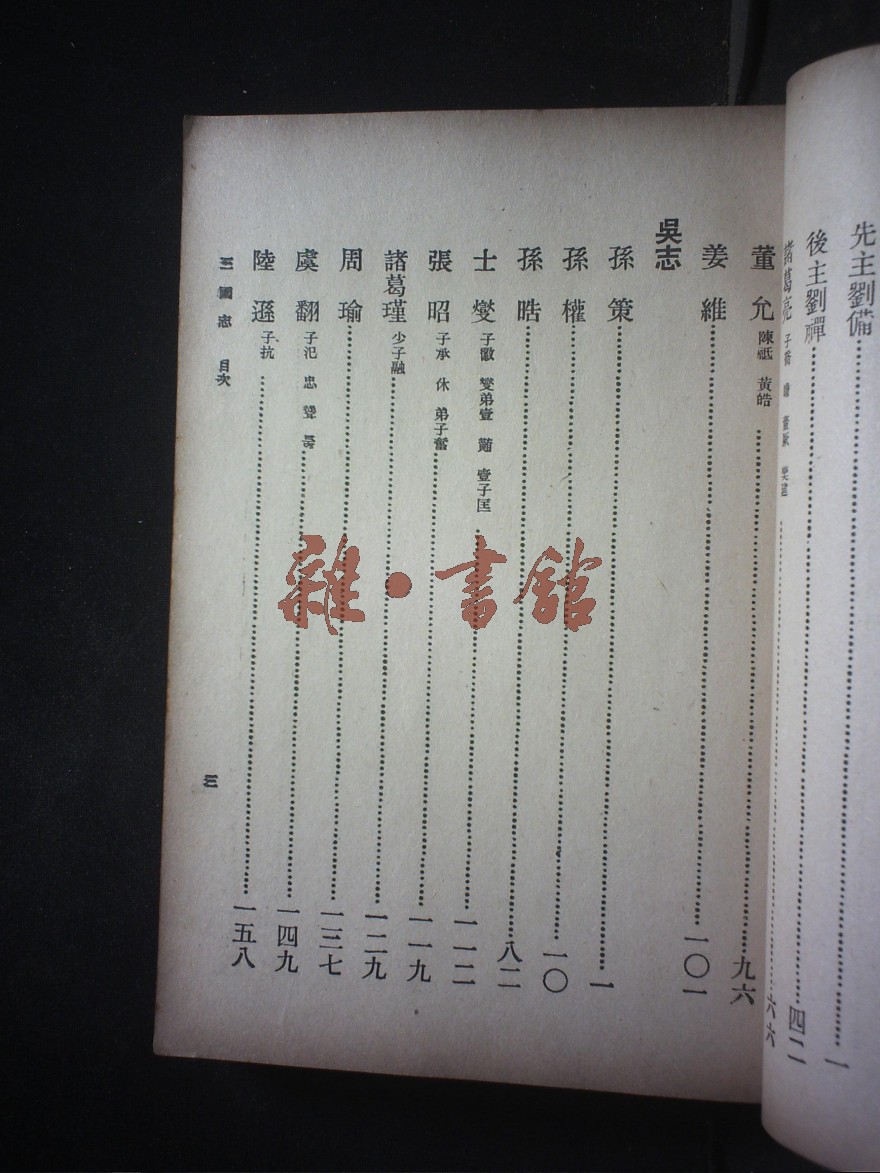 先主劉備……一
後主劉禪……四二
諸葛亮 子喬 瞻 董厥 樊建……六六
董允 陳祗 黃皓……九六
姜維……一〇一
吳志
孫策……一
孫權……一〇
孫晧……八二
士燮 子徽 燮弟壹 䵋 壹子匡……一一二
張昭 子承 休 弟子奮……一一九
諸葛瑾 少子融……一二九
周瑜……一三七
虞翻 子汜 忠 聳 昺……一四九
陸遜 子抗……一五八
三國志 目次
三
雜·書館